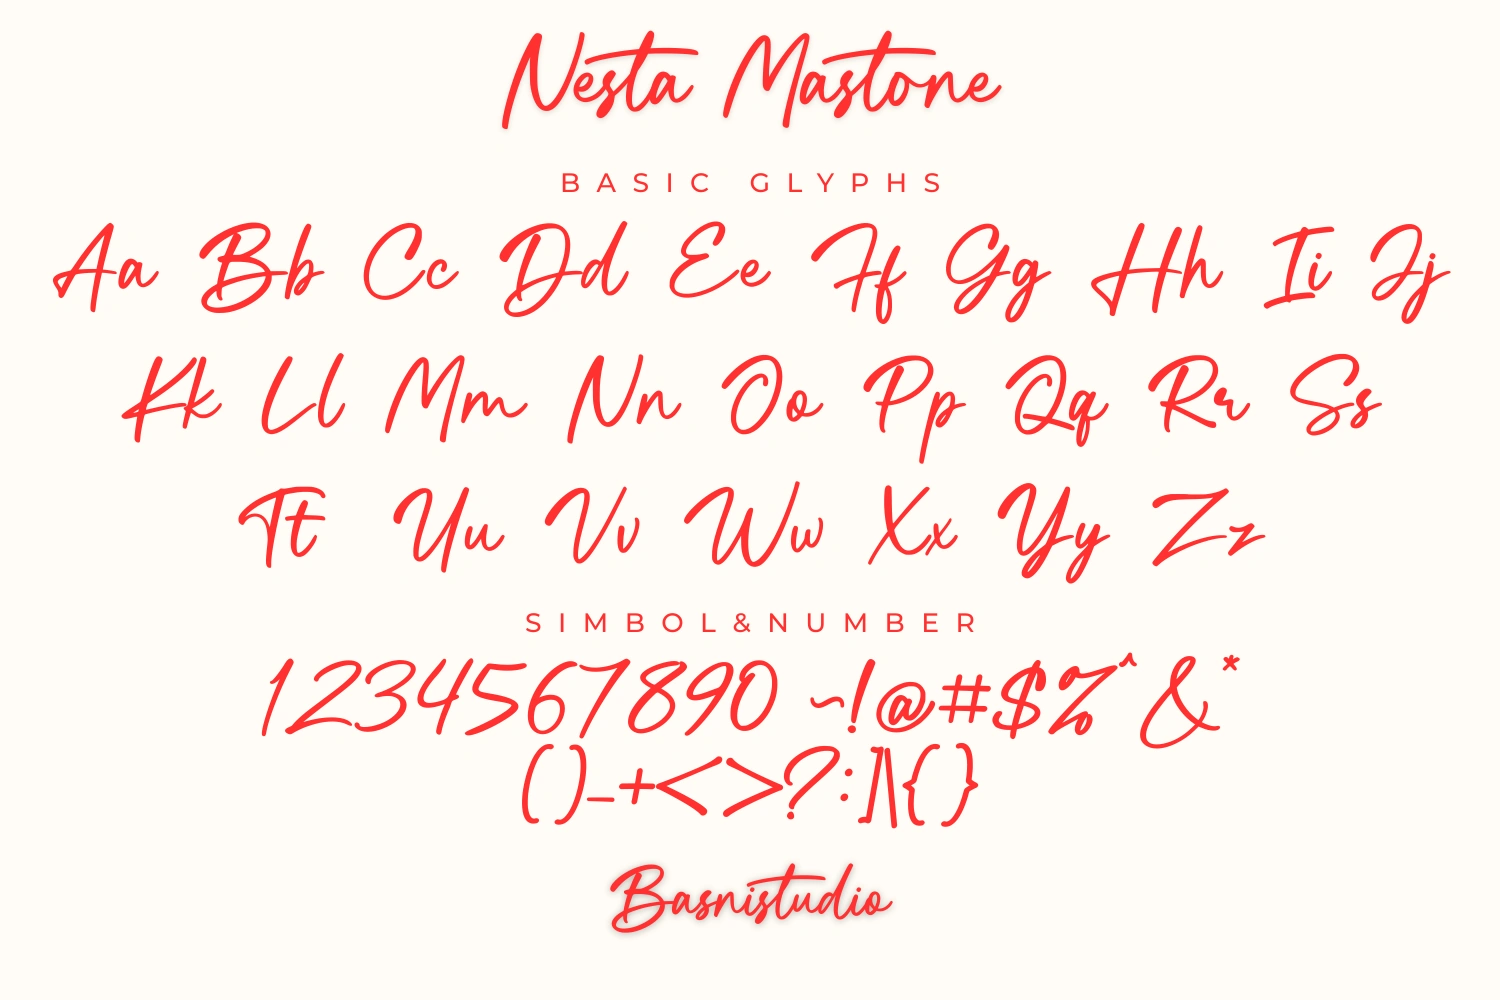 Nesta Mastone
BASIC GLYPHS
Aa Bb Cc Dd Ee Ff Gg Hh Ii Jj
Kk Ll Mm Nn Oo Pp Qq Rr Ss
Tt Uu Vv Ww Xx Yy Zz
SIMBOL&NUMBER
1234567890 ~!@#$%^&*
()_+<>?:]\{}
Basnistudio